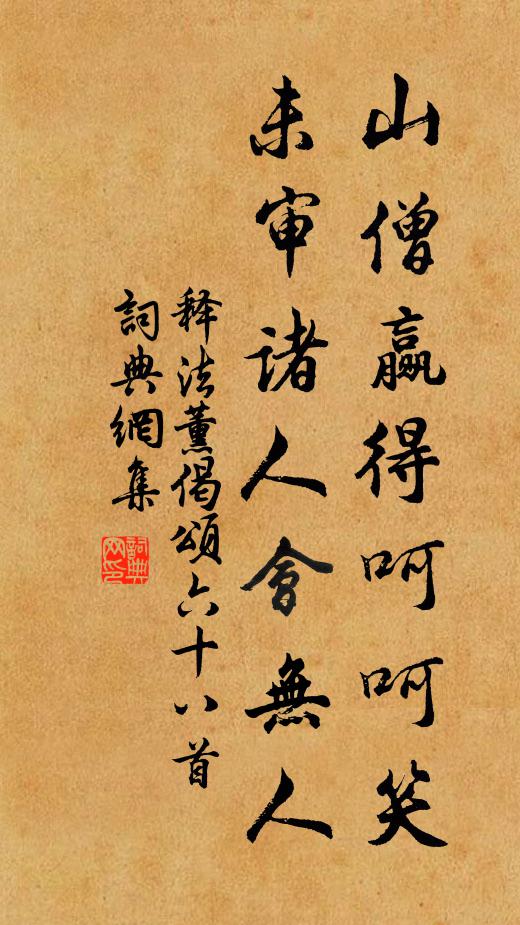 山僧贏得呵呵笑
未审諸人會無人
释法薰偈頌六十八首
詞典網集
詞典
网印